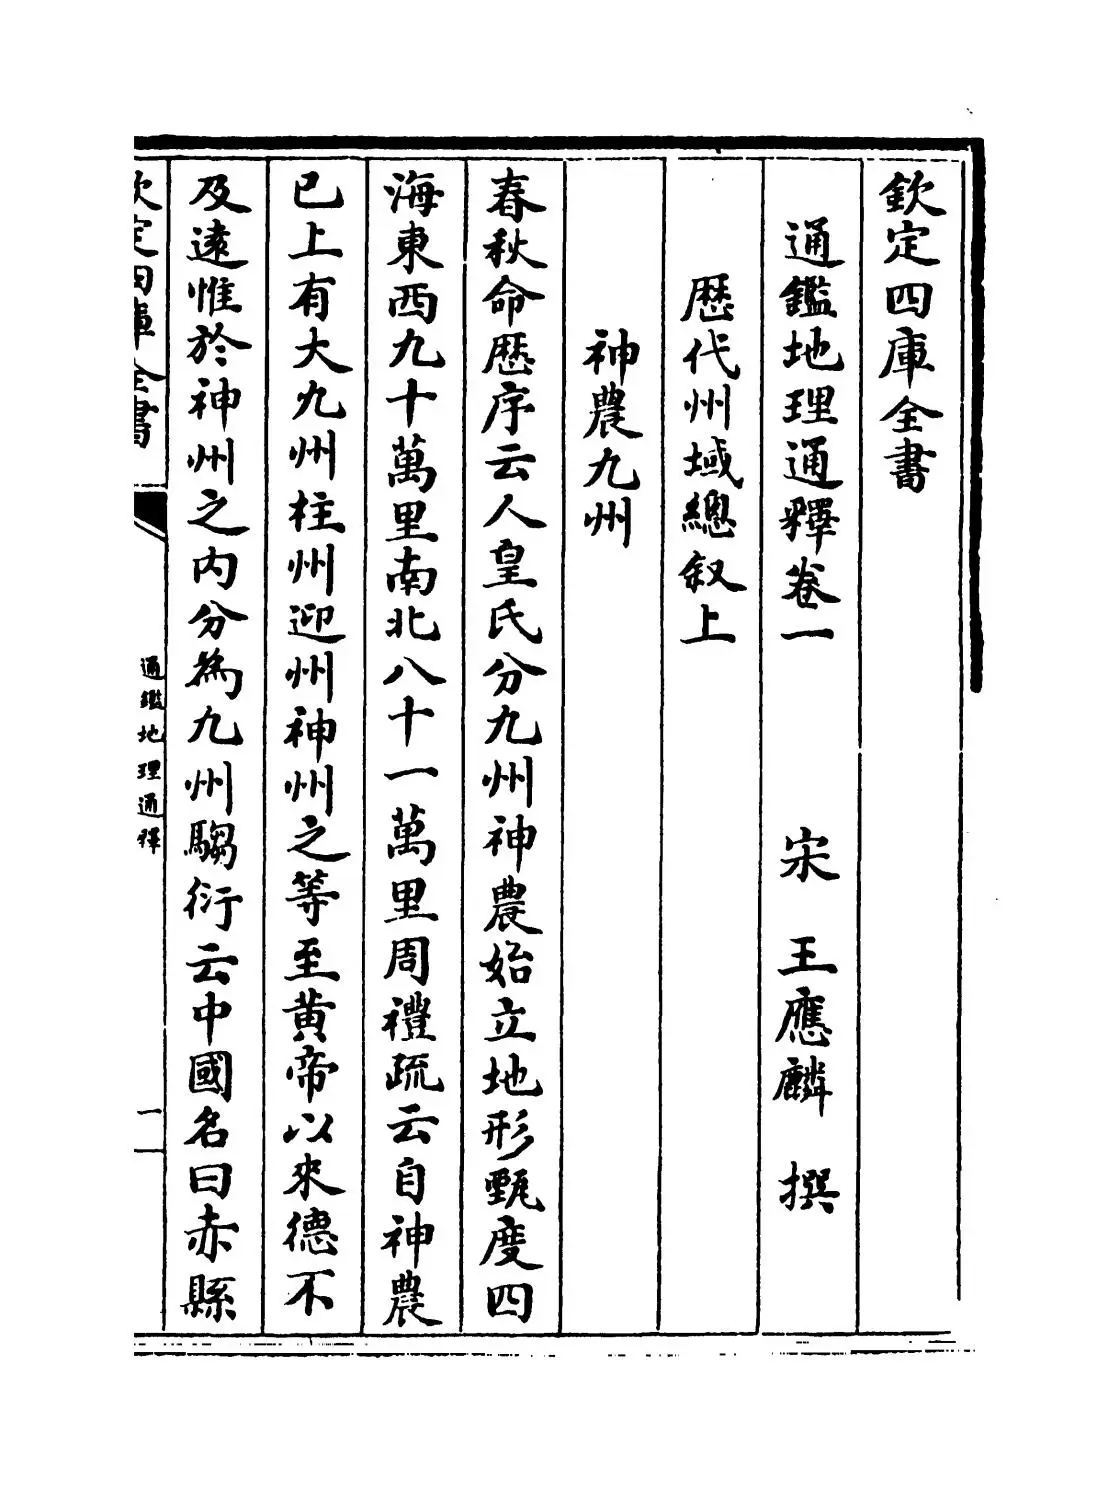 欽定四庫全書
通鑑地理通釋卷一 宋 王應麟 撰
歴代州域總叙上
神農九州
春秋命歴序云人皇氏分九州神農始立地形甄度四
海東西九十萬里南北八十一萬里周禮疏云自神農
已上有大九州柱州迎州神州之等至黄帝以來德不
及逺惟於神州之内分為九州騶衍云中國名曰赤縣
欽定四庫全書
通鑑地理通釋
一